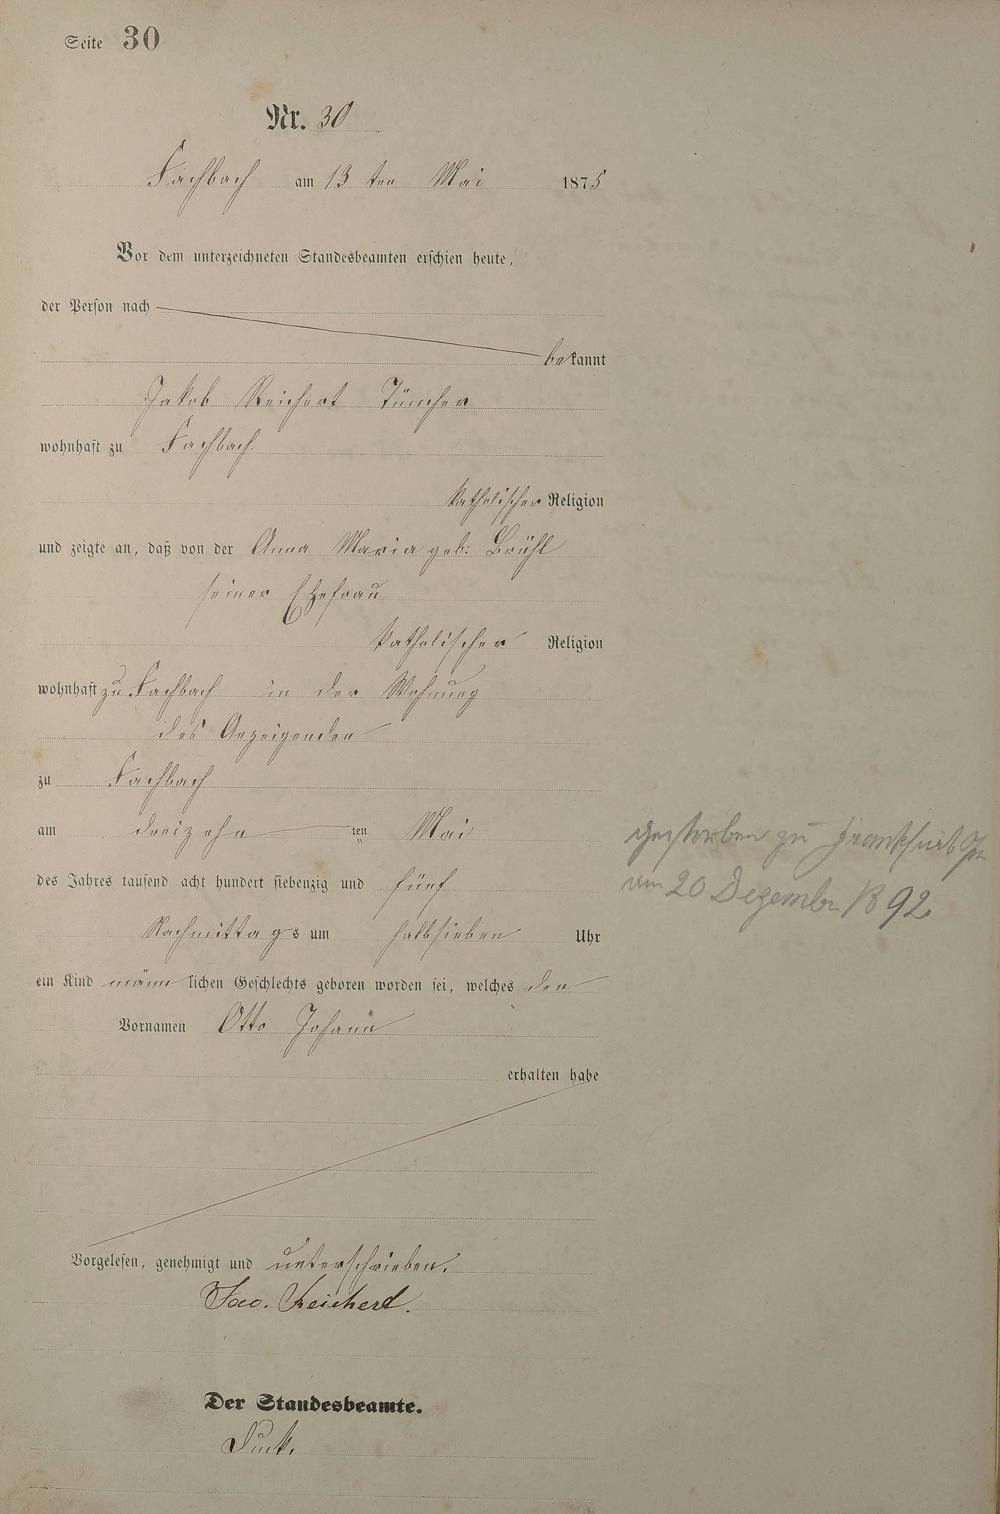 Seite 30
Nr. 30
Fachbach am 13 ten Mai 1875
Vor dem unterzeichneten Standesbeamten erschien heute,
der Person nach
bekannt
Jakob Reichert Tüncher
wohnhaft zu Fachbach
katholischer Religion
und zeigte an, daß von der Anna Maria geb: Brühl
seiner Ehefrau
katholischer Religion
wohnhaft zu Fachbach in der Wohnung
des Anzeigenden
zu Fachbach
am dreizehn ten Mai
des Jahres tausend acht hundert siebenzig und fünf
Nachmittags um halbsieben Uhr
ein Kind männlichen Geschlechts geboren worden sei, welches den
Vornamen Otto Johann
erhalten habe
gestorben zu Frankfurt
am 20 Dezember 1892
Vorgelesen, genehmigt und unterschrieben.
Jac. Reichert.
Der Standesbeamte.